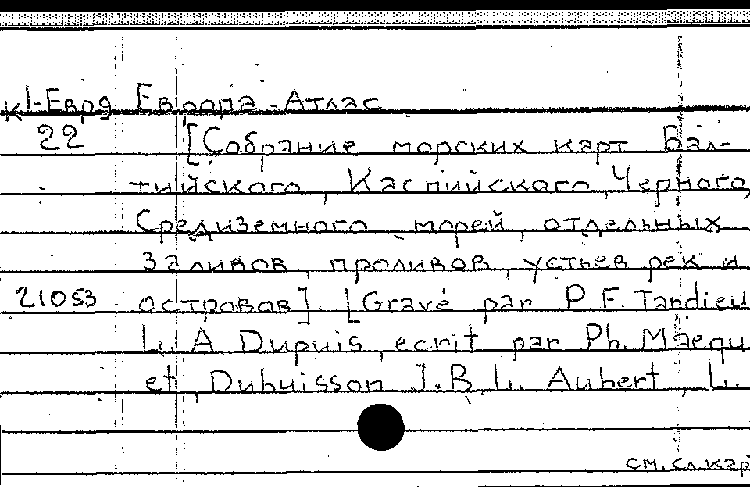 к1-Евр9 Европа-Атлас
22 [Собрание морских карт Бал-
тийского, Каспийского, Черного,
Средиземного морей, отдельных
заливов, проливов, устьев рек и
21053 островов]. [Gravé par P. F. Tardieu
L. A. Dupuis, ecrit par Ph. Maequ
et Dubuisson J. B. L. Aubert, L.
см. сл. кар